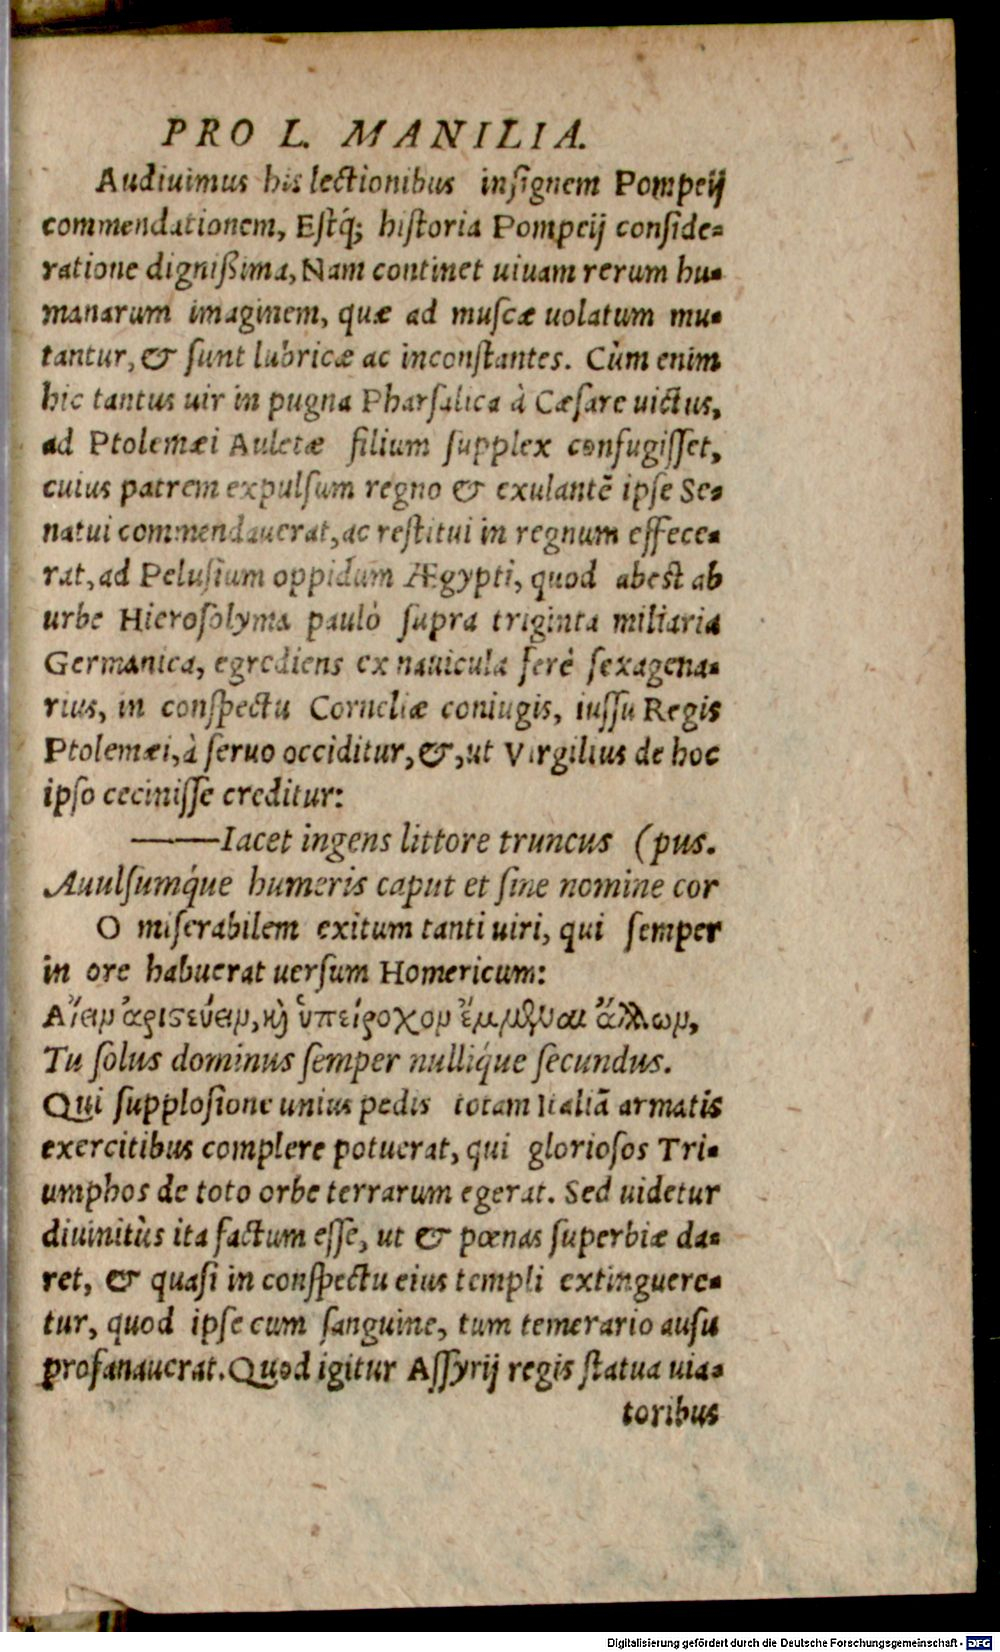 PRO L. MANILIA.
Audiuimus his lectionibus insignem Pompeij
commendationem, Estq́; historia Pompeij conside-
ratione dignißima, Nam continet uiuam rerum hu-
manarum imaginem, quæ ad muscæ uolatum mu-
tantur, & sunt lubricæ ac inconstantes. Cùm enim
hic tantus uir in pugna Pharsalica à Cæsare uictus,
ad Ptolemæi Auletæ filium supplex confugisset,
cuius patrem expulsum regno & exulantē ipse Se-
natui commendauerat, ac restitui in regnum effece-
rat, ad Pelusium oppidum Ægypti, quod abest ab
urbe Hierosolyma paulò supra triginta miliaria
Germanica, egrediens ex nauicula ferè sexagena-
rius, in conspectu Corneliæ coniugis, iussu Regis
Ptolemæi, à seruo occiditur, &, ut Virgilius de hoc
ipso cecinisse creditur:
——Iacet ingens littore truncus (pus.
Auulsumq́ue humeris caput et sine nomine cor
O miserabilem exitum tanti uiri, qui semper
in ore habuerat uersum Homericum:
Αἴειν ἀριστεύειν, καὶ ὑπείροχον ἔμμεναι ἄλλων,
Tu solus dominus semper nulliq́ue secundus.
Qui supplosione unius pedis totam Italiā armatis
exercitibus complere potuerat, qui gloriosos Tri-
umphos de toto orbe terrarum egerat. Sed uidetur
diuinitùs ita factum esse, ut & pœnas superbiæ da-
ret, & quasi in conspectu eius templi extinguere-
tur, quod ipse cum sanguine, tum temerario ausu
profanauerat. Quod igitur Assyrij regis statua uia-
toribus
Digitalisierung gefördert durch die Deutsche Forschungsgemeinschaft - DFG